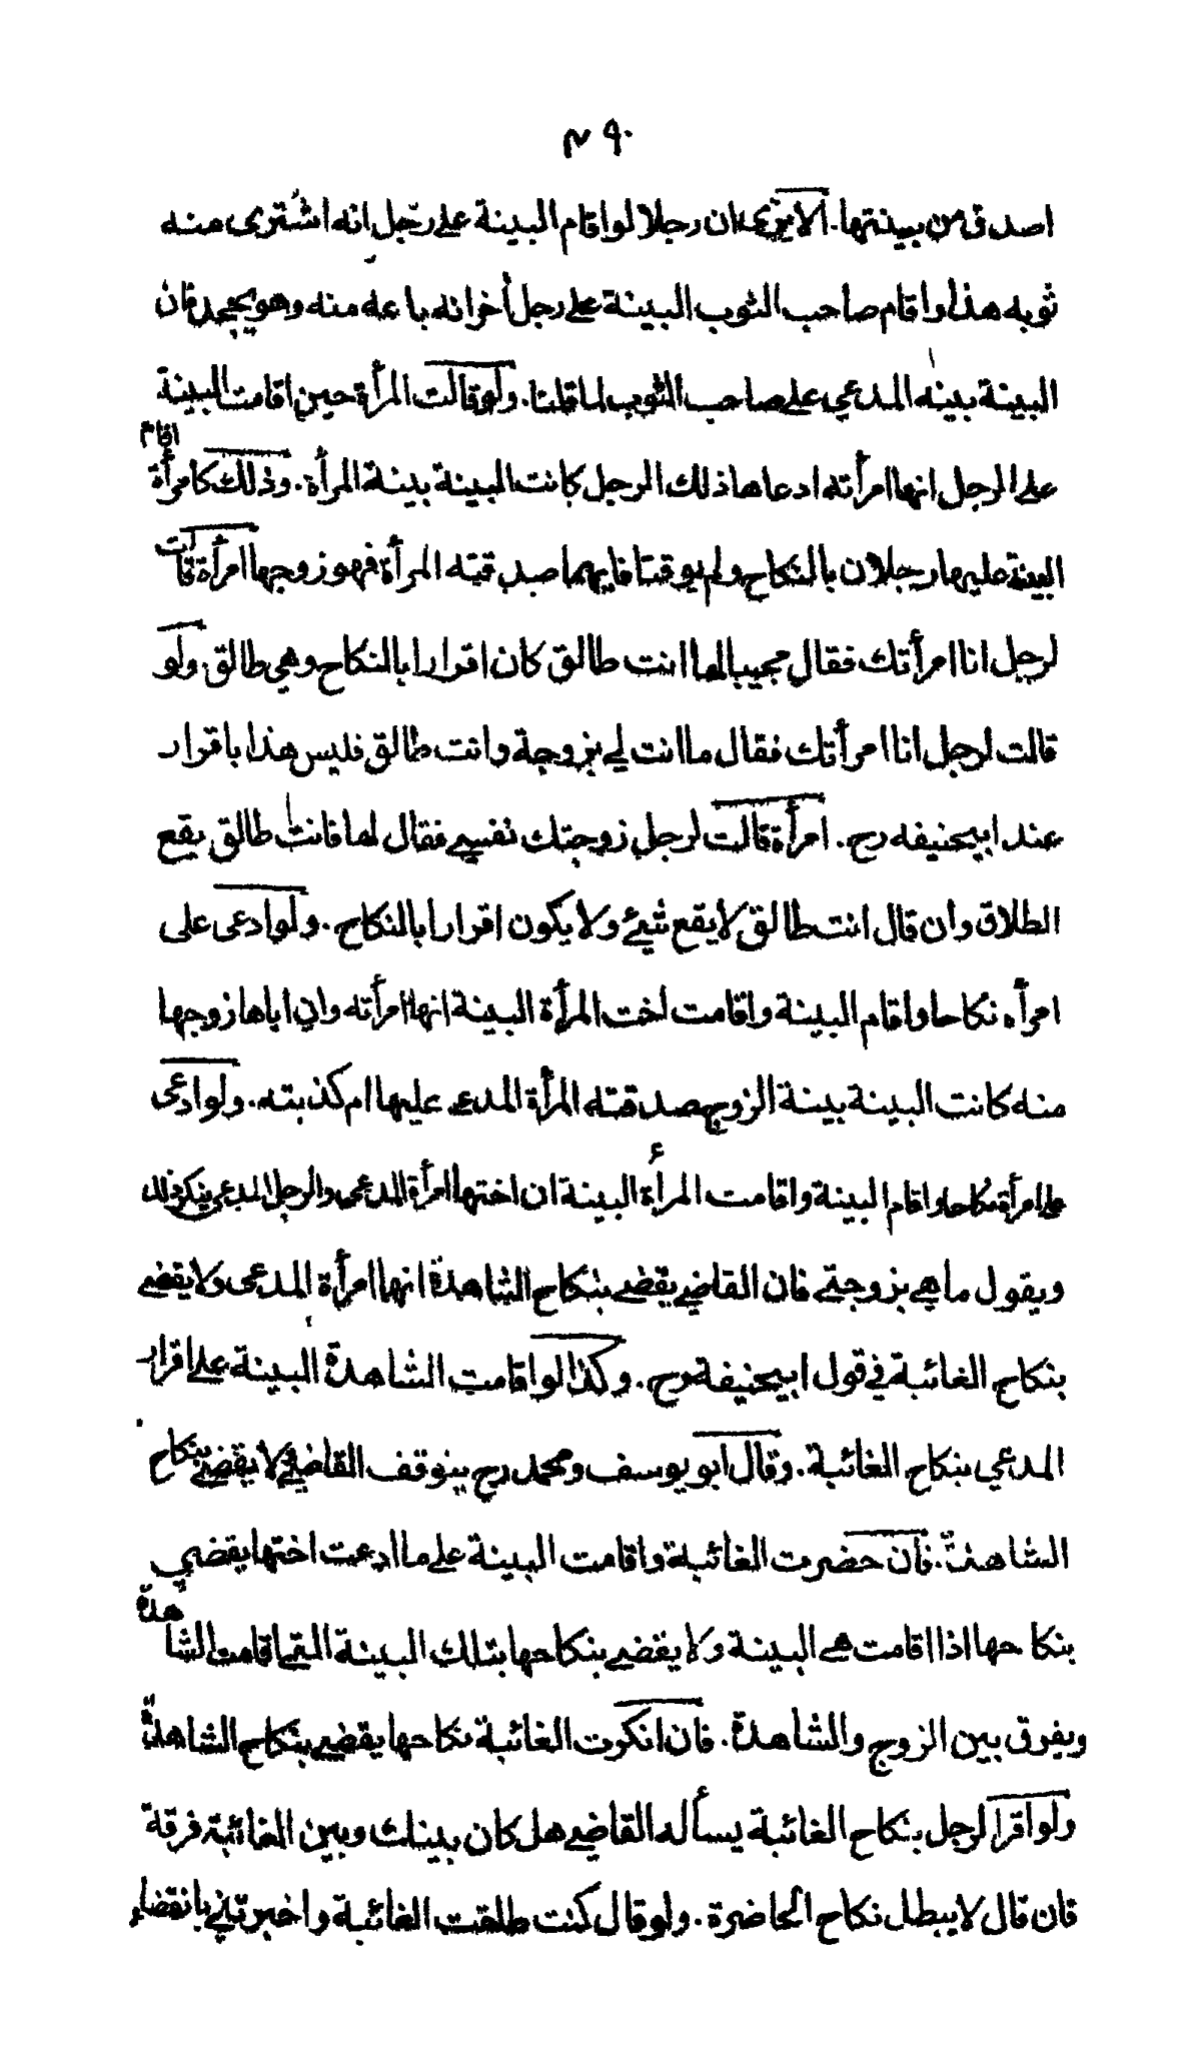 ٩٠ ٣
اصدق من بينتها . ألا يرى ان رجلا لو اقام البينة على رجل انه اشترى منه
ثوبه هذا واقام صاحب الثوب البينة على رجل أخر انه باعه منه وهو يجحد فان
البينة بينة المدعي على صاحب الثوب لما قلنا . ولو قالت المرأة حين اقامت البينة
على الرجل انها امرأته ادعاها ذلك الرجل كانت البينة بينة المرأة . وذلك كامرأة اقام
البينة عليها رجلان بالنكاح ولم يوقتا فايهما صدقته المرأة فهو زوجها امرأة قالت
لرجل انا امرأتك فقال مجيبا لها انت طالق كان اقرارا بالنكاح وهي طالق ولو
قالت لرجل انا امرأتك فقال ما انت لي بزوجة وانت طالق فليس هذا باقرار
عند ابيحنيفه رح . امرأة قالت لرجل زوجتك نفسي فقال لها فانت طالق يقع
الطلاق وان قال انت طالق لا يقع شيئ ولا يكون اقرارا بالنكاح . ولو ادعى على
امرأه نكاحا واقام البينة واقامت أخت المرأة البينة انها امرأته وان اباها زوجها
منه كانت البينة بينة الزوج صدقته المرأة المدعى عليها ام كذبته . ولو ادعى
على امرأة نكاحا واقام البينة واقامت المرأة البينة ان اختها امرأة المدعى والرجل المدعي ينكر ذلك
ويقول ما هي بزوجتي فان القاضي يقضي بنكاح الشاهدة انها امرأة المدعى ولا يقضي
بنكاح الغائبة في قول ابيحنيفة رح . وكذا لو اقامت الشاهدة البينة على اقرار
المدعي بنكاح الغائبة . وقال ابو يوسف ومحمد رح يتوقف القاضي لا يقضي بنكاح
الشاهدة . فان حضرت الغائبة واقامت البينة على ما ادعت اختها يقضي
بنكاحها اذا اقامت هي البينة ولا يقضي بنكاحها بتلك البينة التي اقامت الشاهدة
ويفرق بين الزوج والشاهدة . فان انكرت الغائبة نكاحها يقضي بنكاح الشاهدة
ولو اقر الرجل بنكاح الغائبة يسأله القاضي هل كان بينك وبين الغائبة فرقة
فان قال لا يبطل نكاح الحاضرة . ولو قال كنت طلقت الغائبة واخبرتني بانقضاء